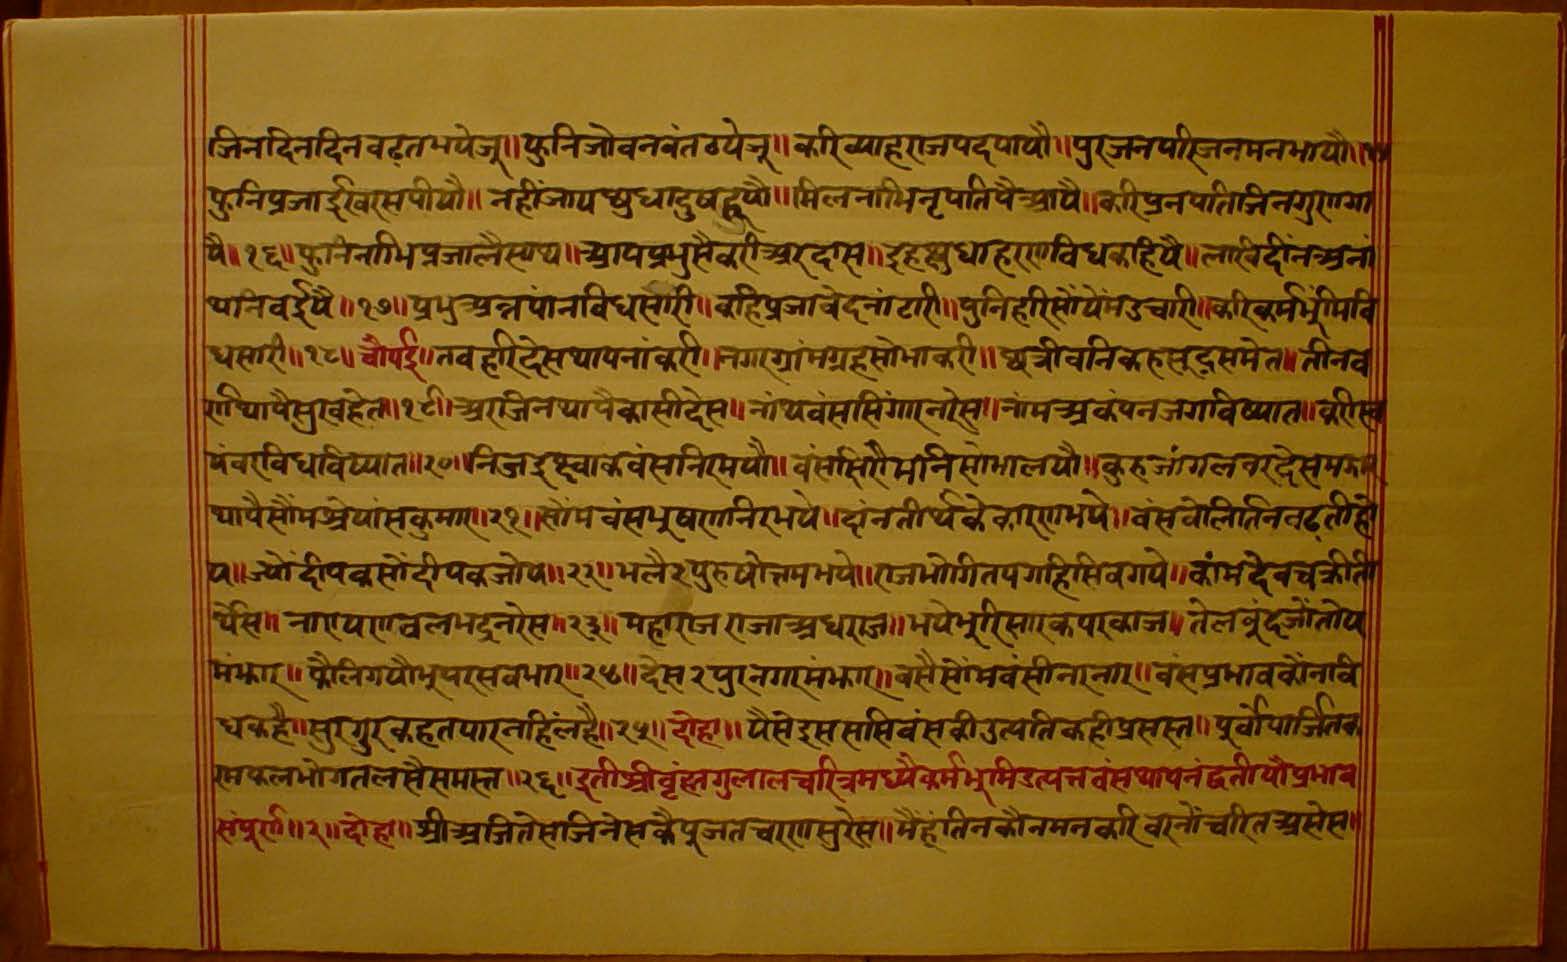 जिनदिनदिनवढतभयेजू॥ फुनिजोवनवंतठयेजू॥ करिव्याहराजपदपायौ॥ पुरजनपरिजनमनभायौ॥
फुनिप्रजाईखरसपीयौ॥ नहींजायछुधादुषहूयौ॥ मिलनाभिनृपतिपैआयै॥ करिप्रनपतिजिनगुणगा
यै॥१६॥ फुनिनाभिप्रजालैसाथ॥ आयप्रभुसैकरीअरदास॥ इहछुधाहरणविधकहियै॥ लाखिदींनअनां
थनिवईयै॥१७॥ प्रभुअन्नपांनविधसारी॥ कहिप्रजावेदनांटारी॥ पुनिहरिसौंयेंमउचारी॥ करिकर्मभुंमिवि
धसारी॥१८॥ चौपई॥ तवहरिदेसथापनांकरी॥ नगरग्रांमग्रहसोभाकरी॥ छत्रीवनिकहसूद्रसमेत॥ तीनव
र्णथापैसुखहेत॥१९॥ अरजिनथापैकासीदेस॥ नांथवंससिंगारनरेस॥ नांमअकंपनजगविष्यात॥ करीस्व
यंवरविधविष्यात॥२०॥ निजइक्ष्वाकवंसनिरमयौ॥ वंससिरौमनिसोभालयौ॥ कुरुजांगलवरदेसमझार
थापैसौंमश्रेयांसकुमार॥२१॥ सौंमवंसभूषणनिरभये॥ दांनतीर्थकेकारणभये॥ वंसवेलितिनवढतीहो
य॥ ज्योंदीपकसोंदीपकजोय॥२२॥ भलै२पुरुषोत्तमभये॥ राजभोगीतपगहिसिवगये॥ कांमदेवचक्रीती
र्थेस॥ नारायणवलभद्रनरेस॥२३॥ महाराजराजाअधराज॥ भयेभुरिसारकपरकाज॥ तेलबुंदजोंतोय
मंझार॥ फैलिगयौभूपरसवभार॥२४॥ देस२पुरनगरमंझार॥ वसैसोंमवंसीनरनार॥ वंसप्रभावकौंनवि
धकहै॥ सुरगुरकहतपारनहिंलहै॥२५॥ दोहा॥ यैसेइससिवंसकीउत्पतिकहीप्रसस्त॥ पुर्वोपार्जितक
रमफलभोगतलसैसमस्त॥२६॥ इतीश्रीवृंह्मगुलालचरित्रमध्यैकर्मभुमिउत्पत्तवंसथापनंद्वतीयौप्रभाव
संपुर्ण॥२॥ दोहा॥ श्रीअजितेसजिनेसकैपूजतचरणसुरेस॥ मैंहूंतिनकौनमनकरिवरनौंचरितअसेस॥